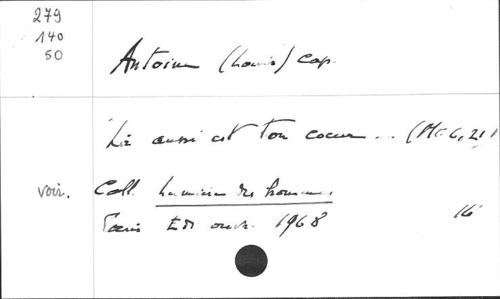 279
140
50
Antoine (Louis) Cap.
"Là aussi est ton coeur... (Mt 6, 21)
voir. Coll. Lumière des hommes.
Paris Ed. ouvr. 1968 16